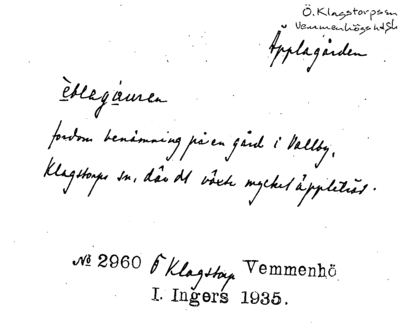 Ö. Klagstorps sn
Vemmenhögs hd Sk
Äpplagården
èblagáuren
fordom benämning på en gård i Vallby,
Klagstorps sn, där det växte mycket äppleträd.
№ 2960 Ö Klagstorp Vemmenhö
I. Ingers 1935.